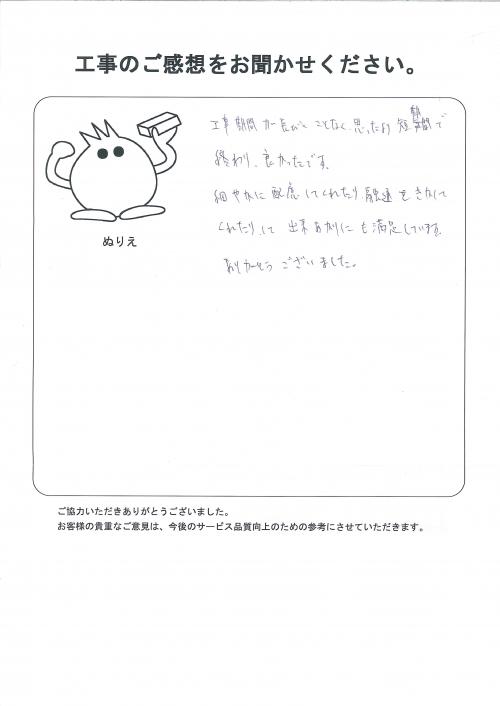 工事のご感想をお聞かせください。
工事期間が長がくことなく、思ったより短期間で
終わり、良かったです。
細やかに配慮してくれたり、融通をきかして
くれたりして出来あがりにも満足しています。
ありがとうございました。
ぬりえ
ご協力いただきありがとうございました。
お客様の貴重なご意見は、今後のサービス品質向上のための参考にさせていただきます。